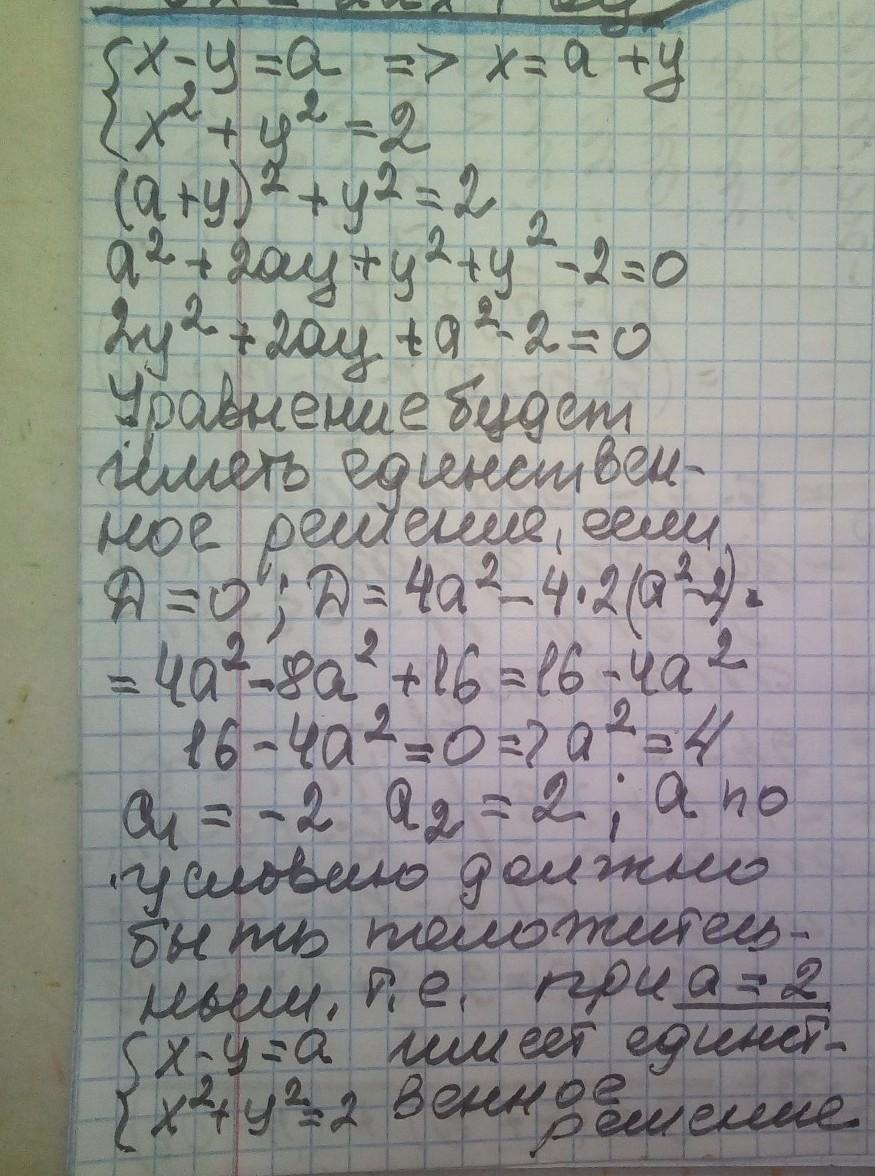 { x - y = a => x = a + y
{ x² + y² = 2
(a+y)² + y² = 2
a² + 2ay + y² + y² - 2 = 0
2y² + 2ay + a² - 2 = 0
Уравнение будет
иметь единствен-
ное решение, если
D = 0; D = 4a² - 4·2(a²-2) =
= 4a² - 8a² + 16 = 16 - 4a²
16 - 4a² = 0 => a² = 4
a₁ = -2 a₂ = 2; a по
условию должно
быть положитель-
ным, т.е. при a = 2
{ x - y = a имеет единст-
{ x² + y² = 2 венное
решение